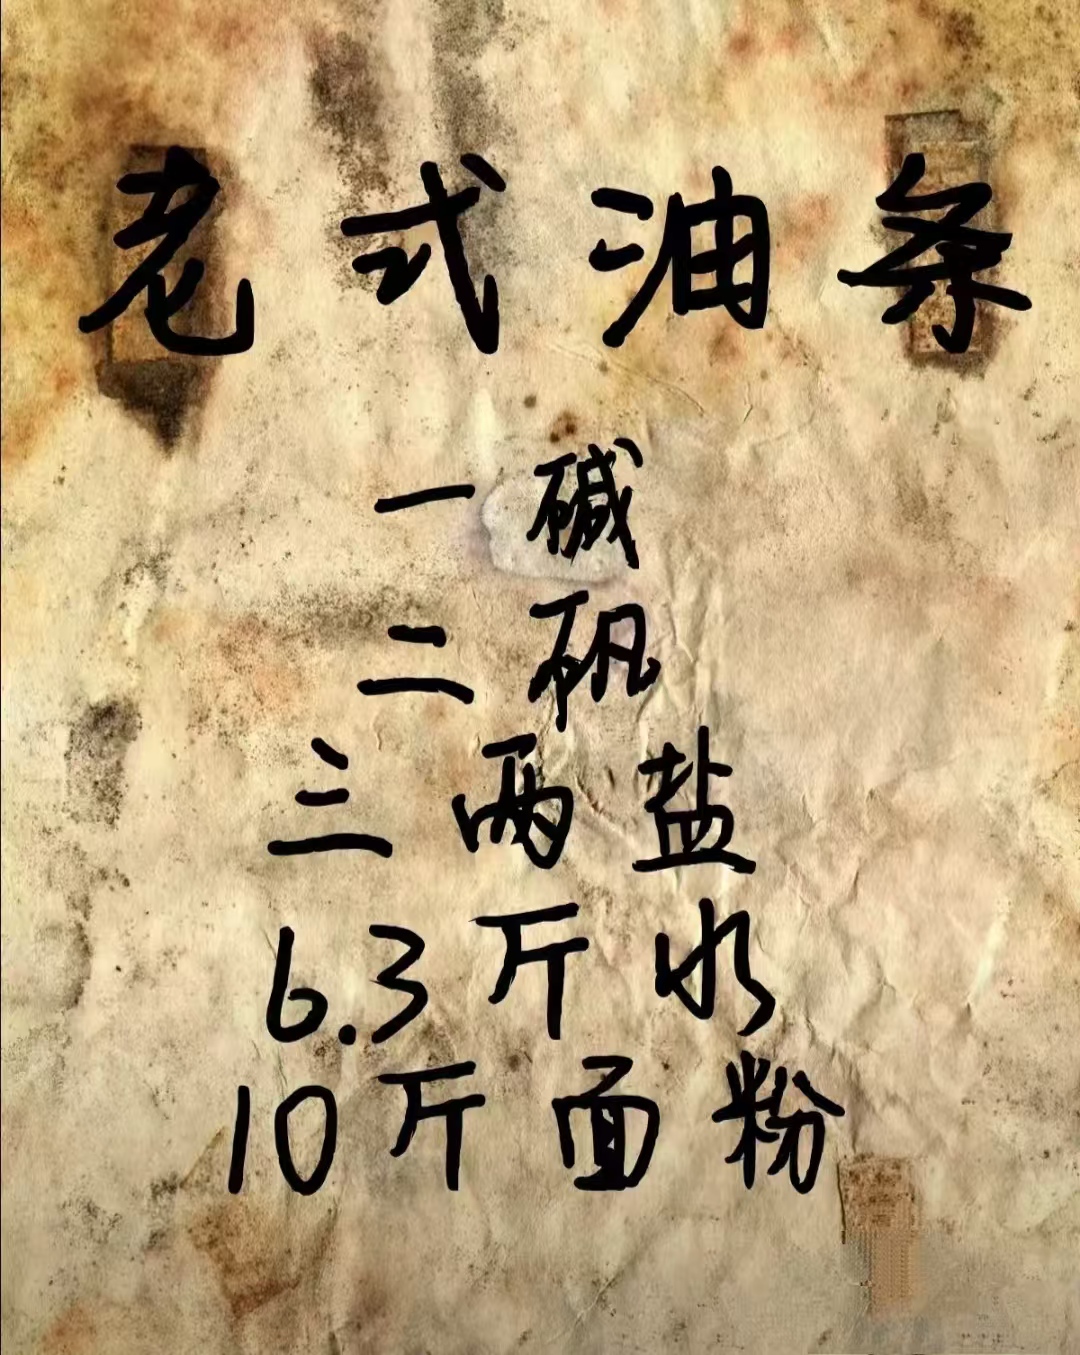 老式油条
一碱
二矾
三两盐
6.3斤水
10斤面粉